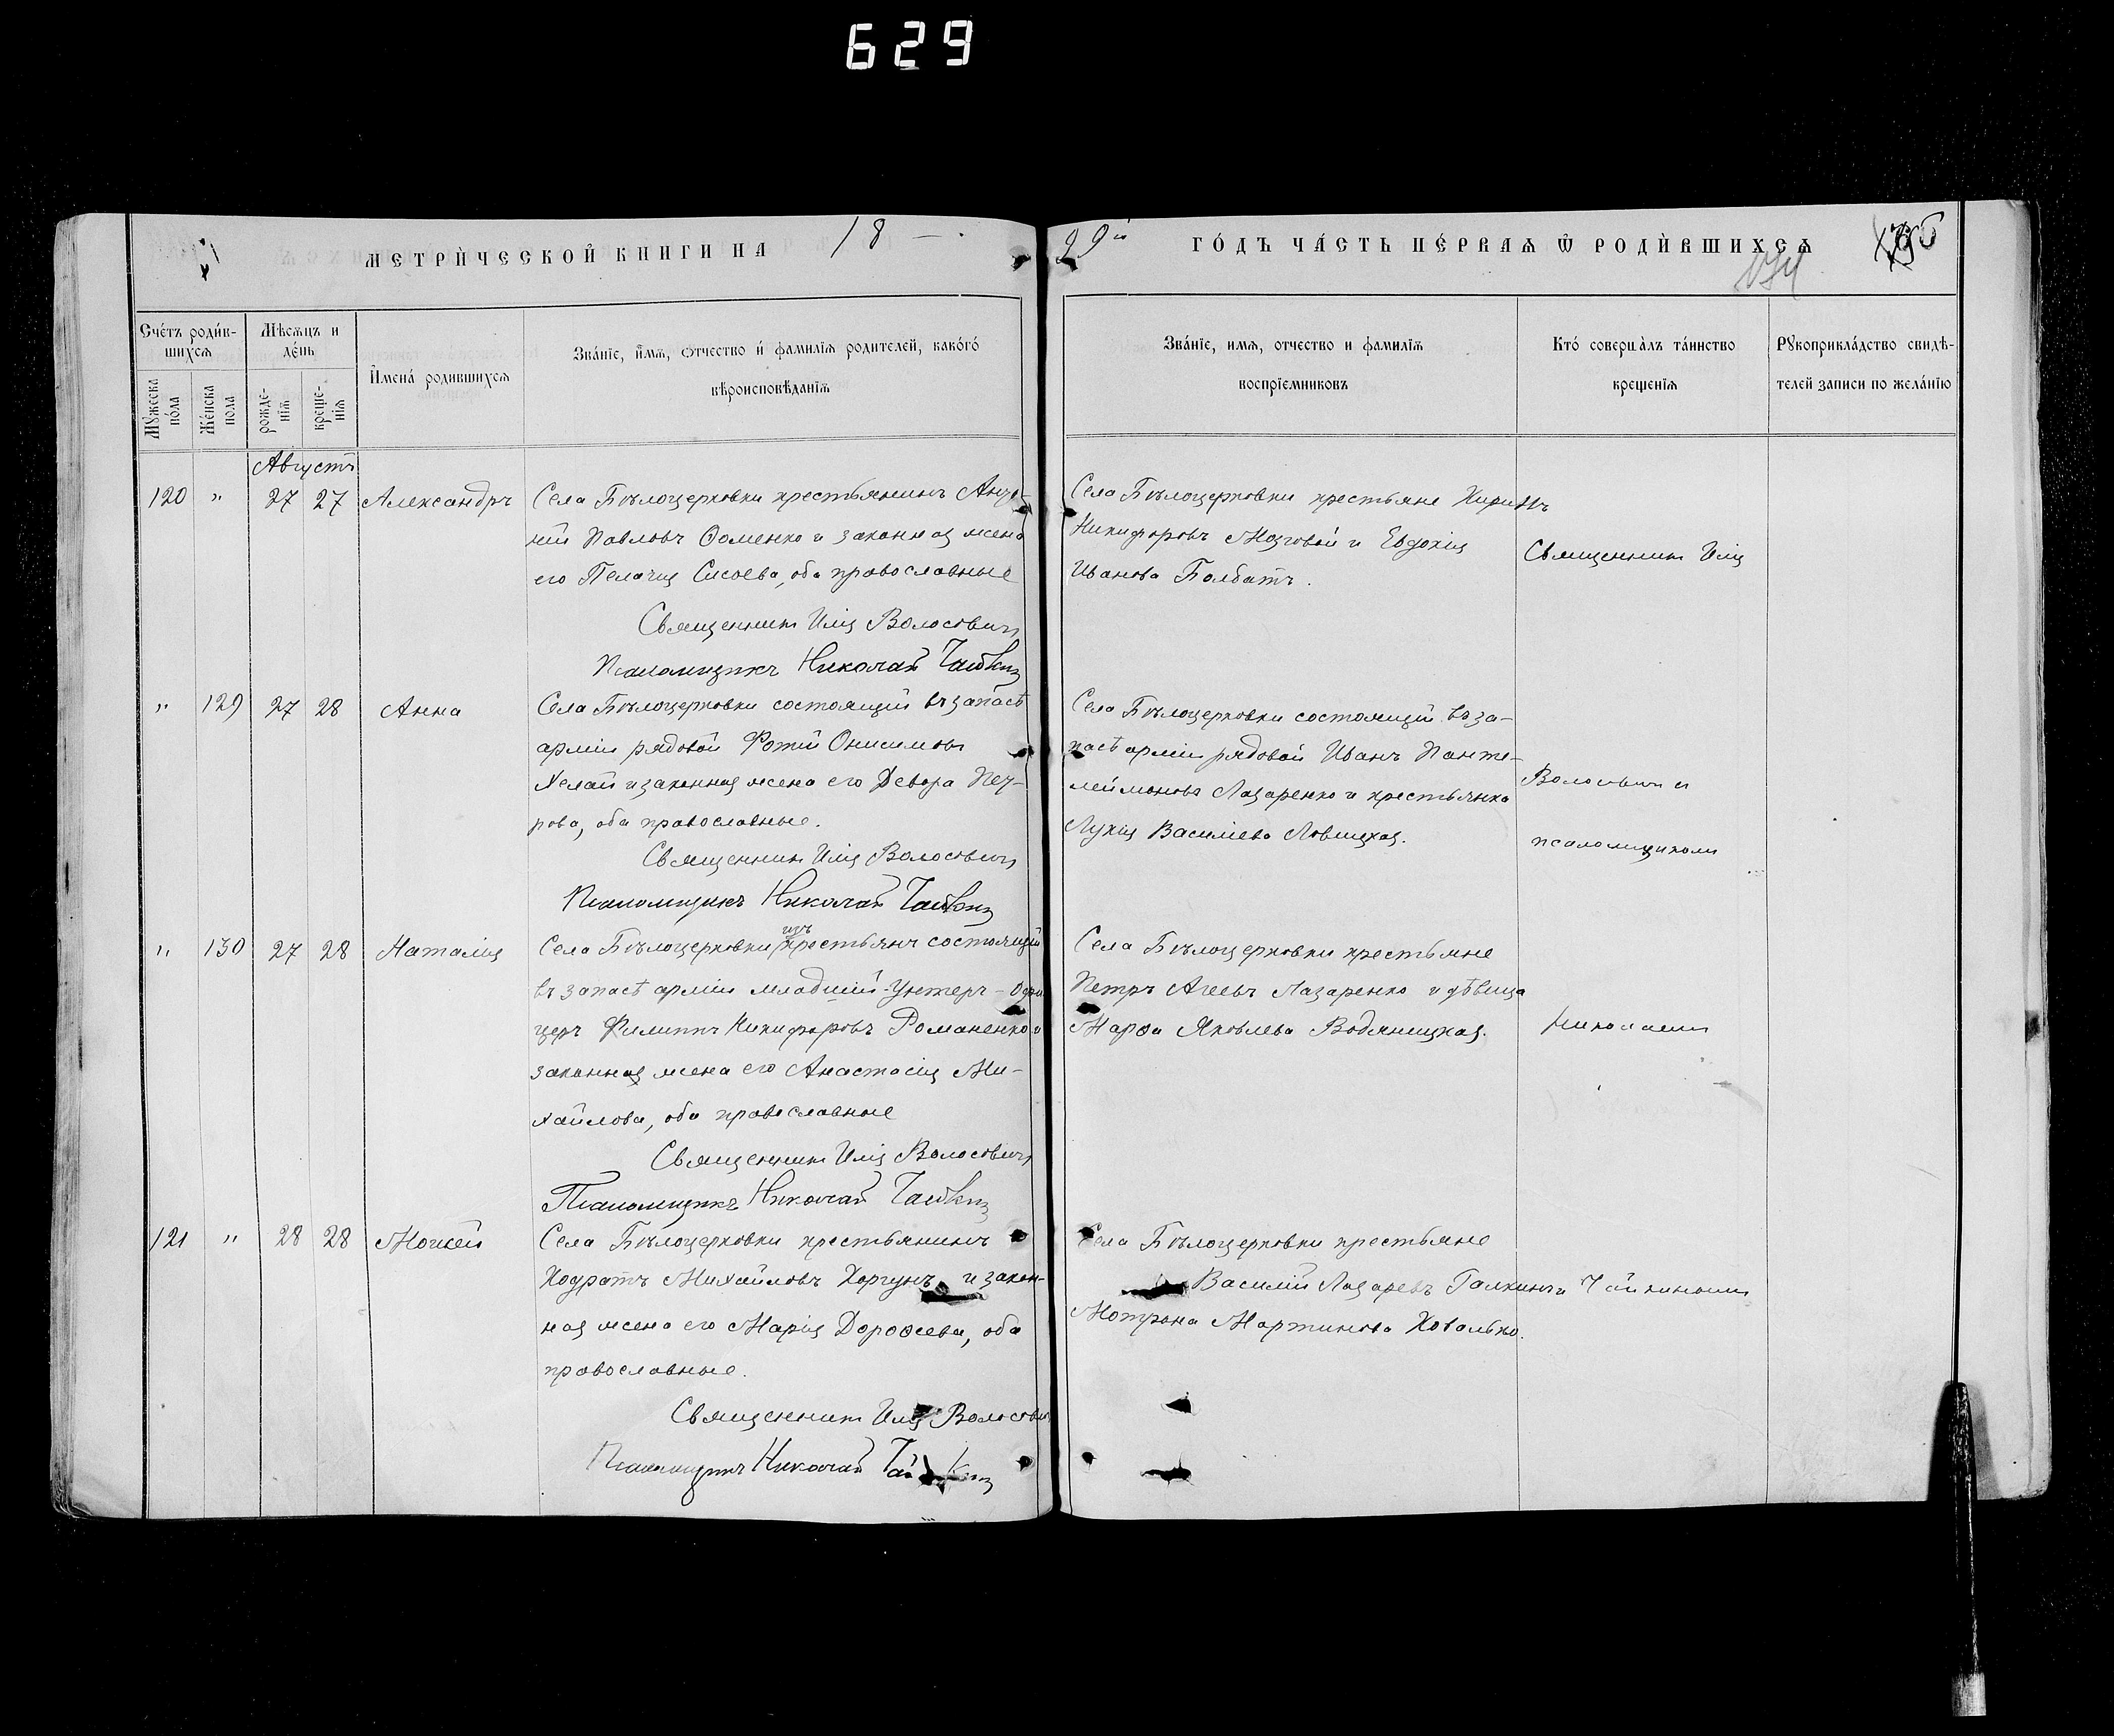 629
МЕТРИ́ЧЕСКОЙ КНИГИ НА 18
99й ГО́ДЪ ЧА́СТЬ ПЕ́РВАѦ Ѡ РОДИ́ВШИХСѦ
Счéтъ роди́в-
шихсѧ
Мѣ́сѧцъ и
де́нь
И҆мена́ родившихсѧ
Зва́нїе, и҆́мѧ, ѻтчество и҆ фамилїѧ родителей, како́гѡ
вѣроисповѣданїѧ
Зва́нїе, имѧ, отчество и фамилїѧ
воспрїемниковъ
Кто́ соверша́лъ та́инство
крещенїѧ
Рꙋкоприкла́дство свидѣ-
телей записи по жела́нїю
Мꙋжеска
по́ла
Же́нска
пола
рожде-
нїѧ
креще-
нїѧ
Августъ
120 " 27 27 Александръ
Села Бѣлоцерковки крестьянинъ
Павловъ Ѳоменко и законная жена
его Пелагія Сисоева, оба православные
Священникъ Илія Волосовичъ
Псаломщикъ Николай Чайкинъ
Села Бѣлоцерковки крестьяне
Никифоровъ Мозговой и Евдокія
Иванова Болбатъ.
Священникъ Илія
" 129 27 28 Анна
Села Бѣлоцерковки состоящій въ запасѣ
арміи рядовой Фотій Онисимовъ
и законная жена его Девора Пет-
рова, оба православные.
Священникъ Илія Волосовичъ
Псаломщикъ Николай Чайкинъ
Села Бѣлоцерковки состоящій въ за-
пасѣ арміи рядовой Иванъ Панте-
леймоновъ Лазаренко и крестьянка
Лукія Василіева
Волосовичъ съ
псаломщикомъ
" 130 27 28 Наталія
Села Бѣлоцерковки изъ крестьянъ состоящій
въ запасѣ арміи младшій Унтеръ-Офи
церъ Филиппъ Никифоровъ Романенко и
законная жена его Анастасія Ми-
хайлова, оба православные
Священникъ Илія Волосовичъ
Псаломщикъ Николай Чайкинъ
Села Бѣлоцерковки крестьяне
Петръ Агеевъ Лазаренко и дѣвица
Марѳа Яковлева Водяницкая.
Николаемъ
121 " 28 28 Мочсей
Села Бѣлоцерковки крестьянинъ
Кодратъ Михайловъ Коргунъ и закон-
ная жена его Марія Дороѳеева, оба
православные.
Священникъ Илія Волосович
Псаломщикъ Николай Чайкинъ
Села Бѣлоцерковки крестьяне
Василій Лазаревъ Галкинъ и
Мотрона Мартинова Ковалько.
Чайкинымъ